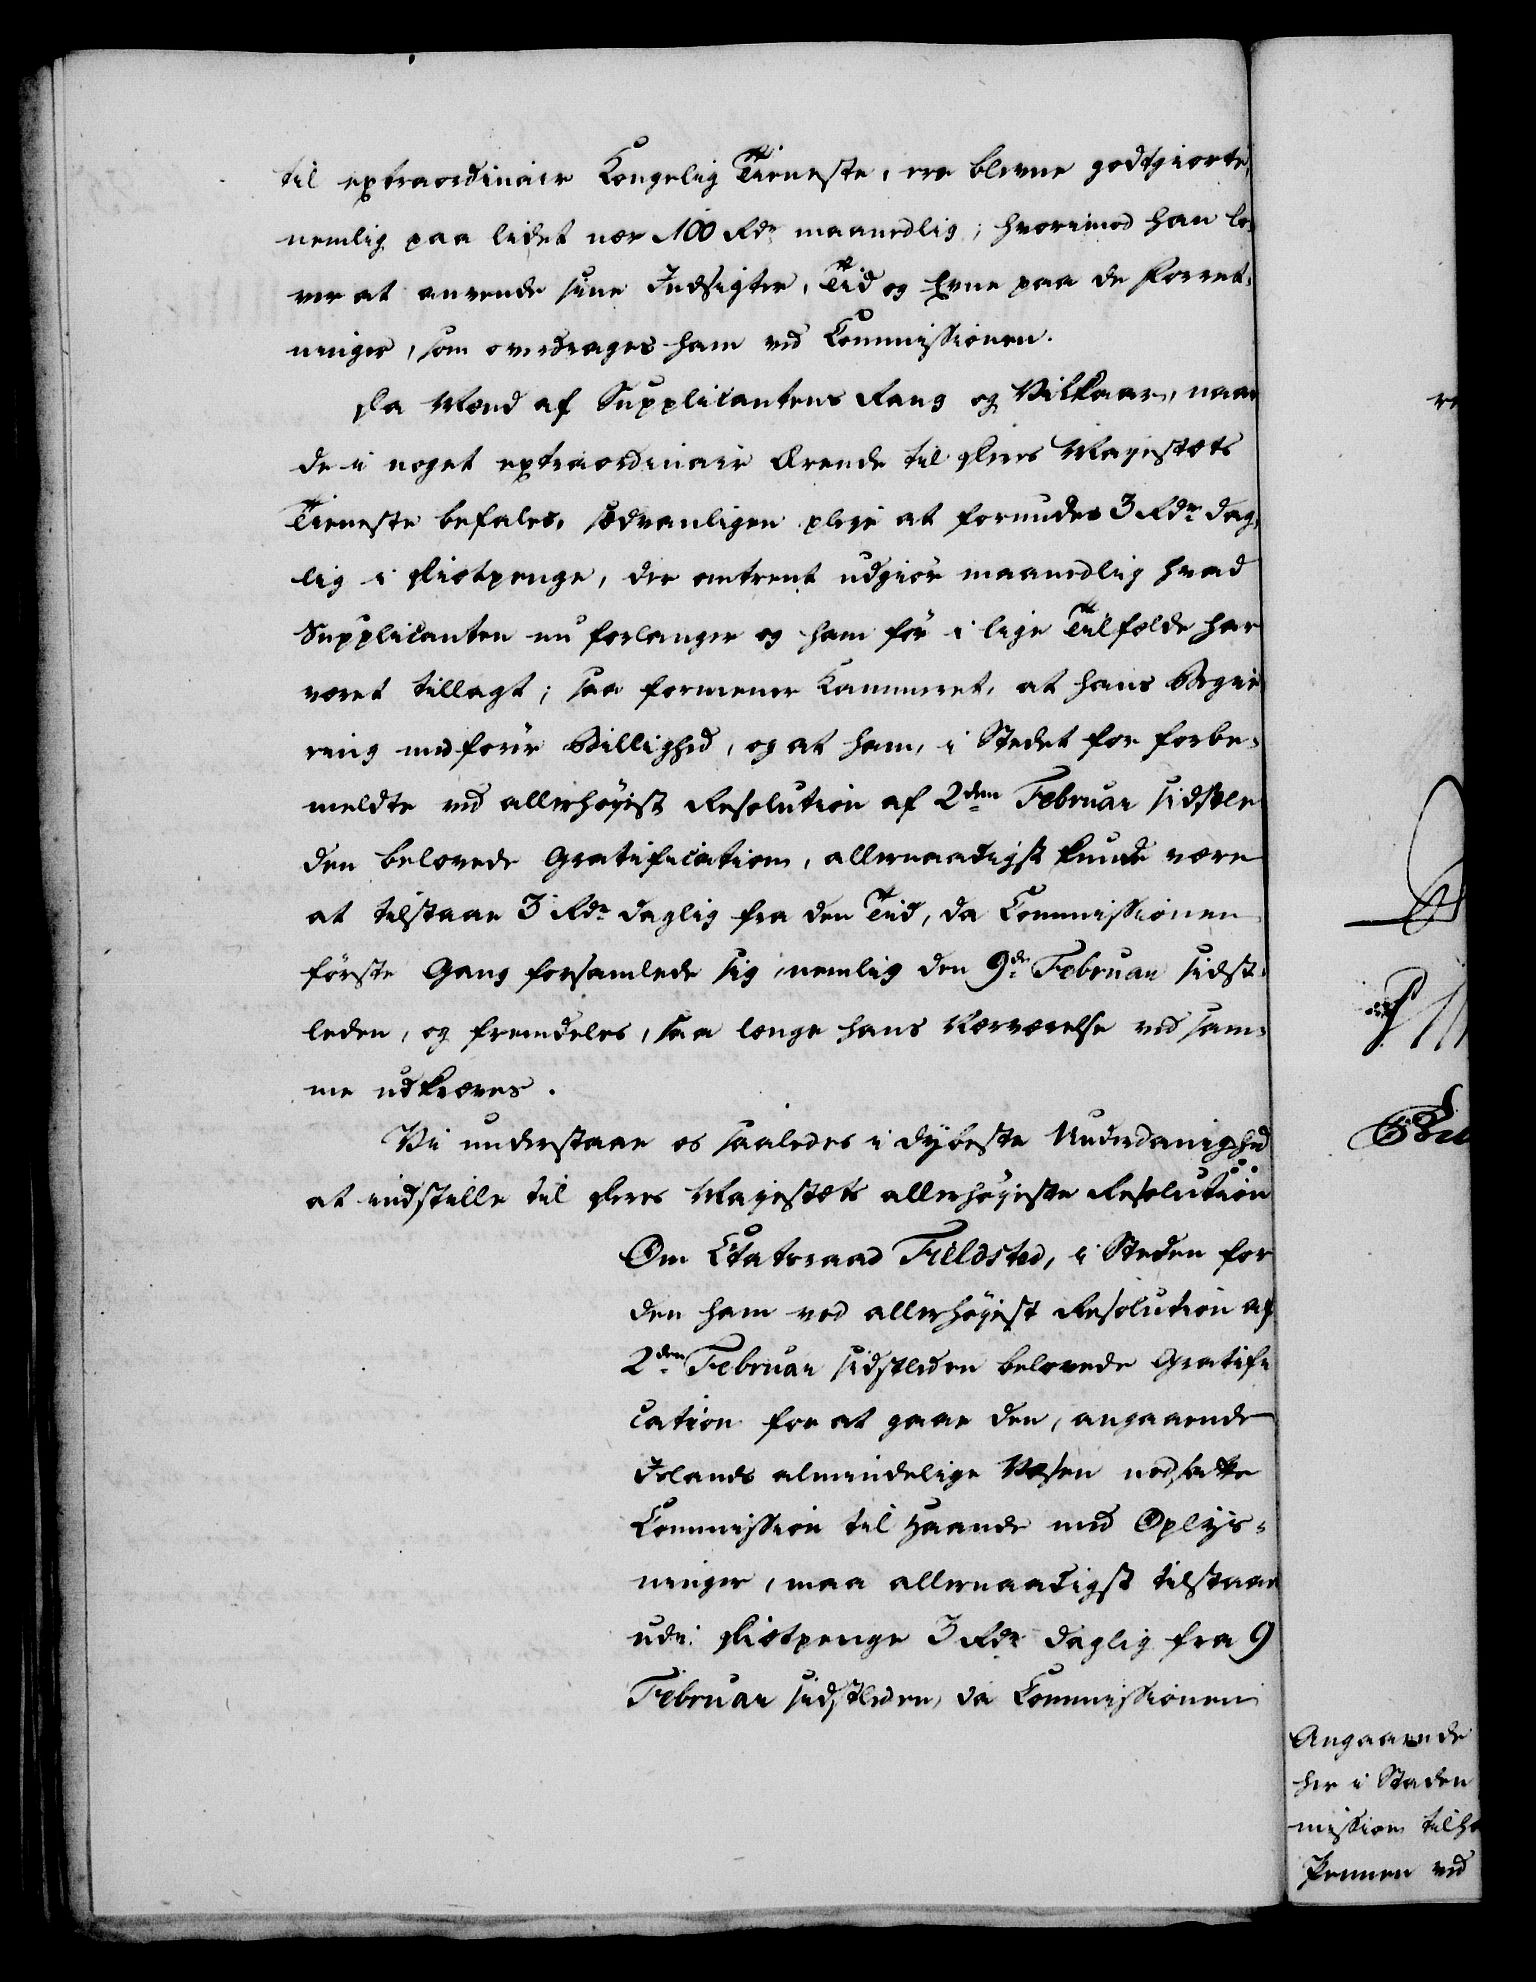 til extraordinair Kongelig Tieneste, ere blevne godtgiorte,
nemlig paa lidet nær 100 Rdr maanedlig; hvorimod han lo-
ver at anvende sine Indsigter, Tid og Evne paa de Forret-
ninger, som overdrages ham ved Commissionen.
Da Mænd af Supplicantens Rang og Vilkaar, naar
de i noget extraordinair Ærende til Deres Majestæts
Tieneste befales, sædvanligen pleje at forundes 3 Rdr dag-
lig i Diætpenge, der omtrent udgiør maanedlig hvad
Supplicanten nu forlanger og ham før i lige Tilfælde har
været tillagt; saa formener Kammeret, at hans Begie-
ring medfører Billighed, og at ham, i Stedet for forbe-
meldte ved allerhøyest Resolution af 2den Februar sidstle-
den belovede Gratification, allernaadigst kunde være
at tilstaae 3 Rdr daglig fra den Tid, da Commissionen
første Gang forsamlede sig nemlig den 9de Februar sidst-
leden, og fremdeles, saa længe hans Nærværelse ved sam-
me udkræves.
Vi understaae os saaledes i dybeste Underdanighed
at indstille til Deres Majestæts allerhøyeste Resolution
Om Etatsraad Fieldsted, i Steden for
den ham ved allerhøyest Resolution af
2den Februar sidstleden belovede Gratifi
cation for at gaae den, angaaende
Islands almindelige Væsen nedsatte
Commission til Haande med Oplys-
ninger, maa allernaadigst tilstaaes
udi Diætpenge 3 Rdr daglig fra 9
Februar sidstleden, da Commissionen
Angaaende
her i Staden
mission tilho
Pennen ved